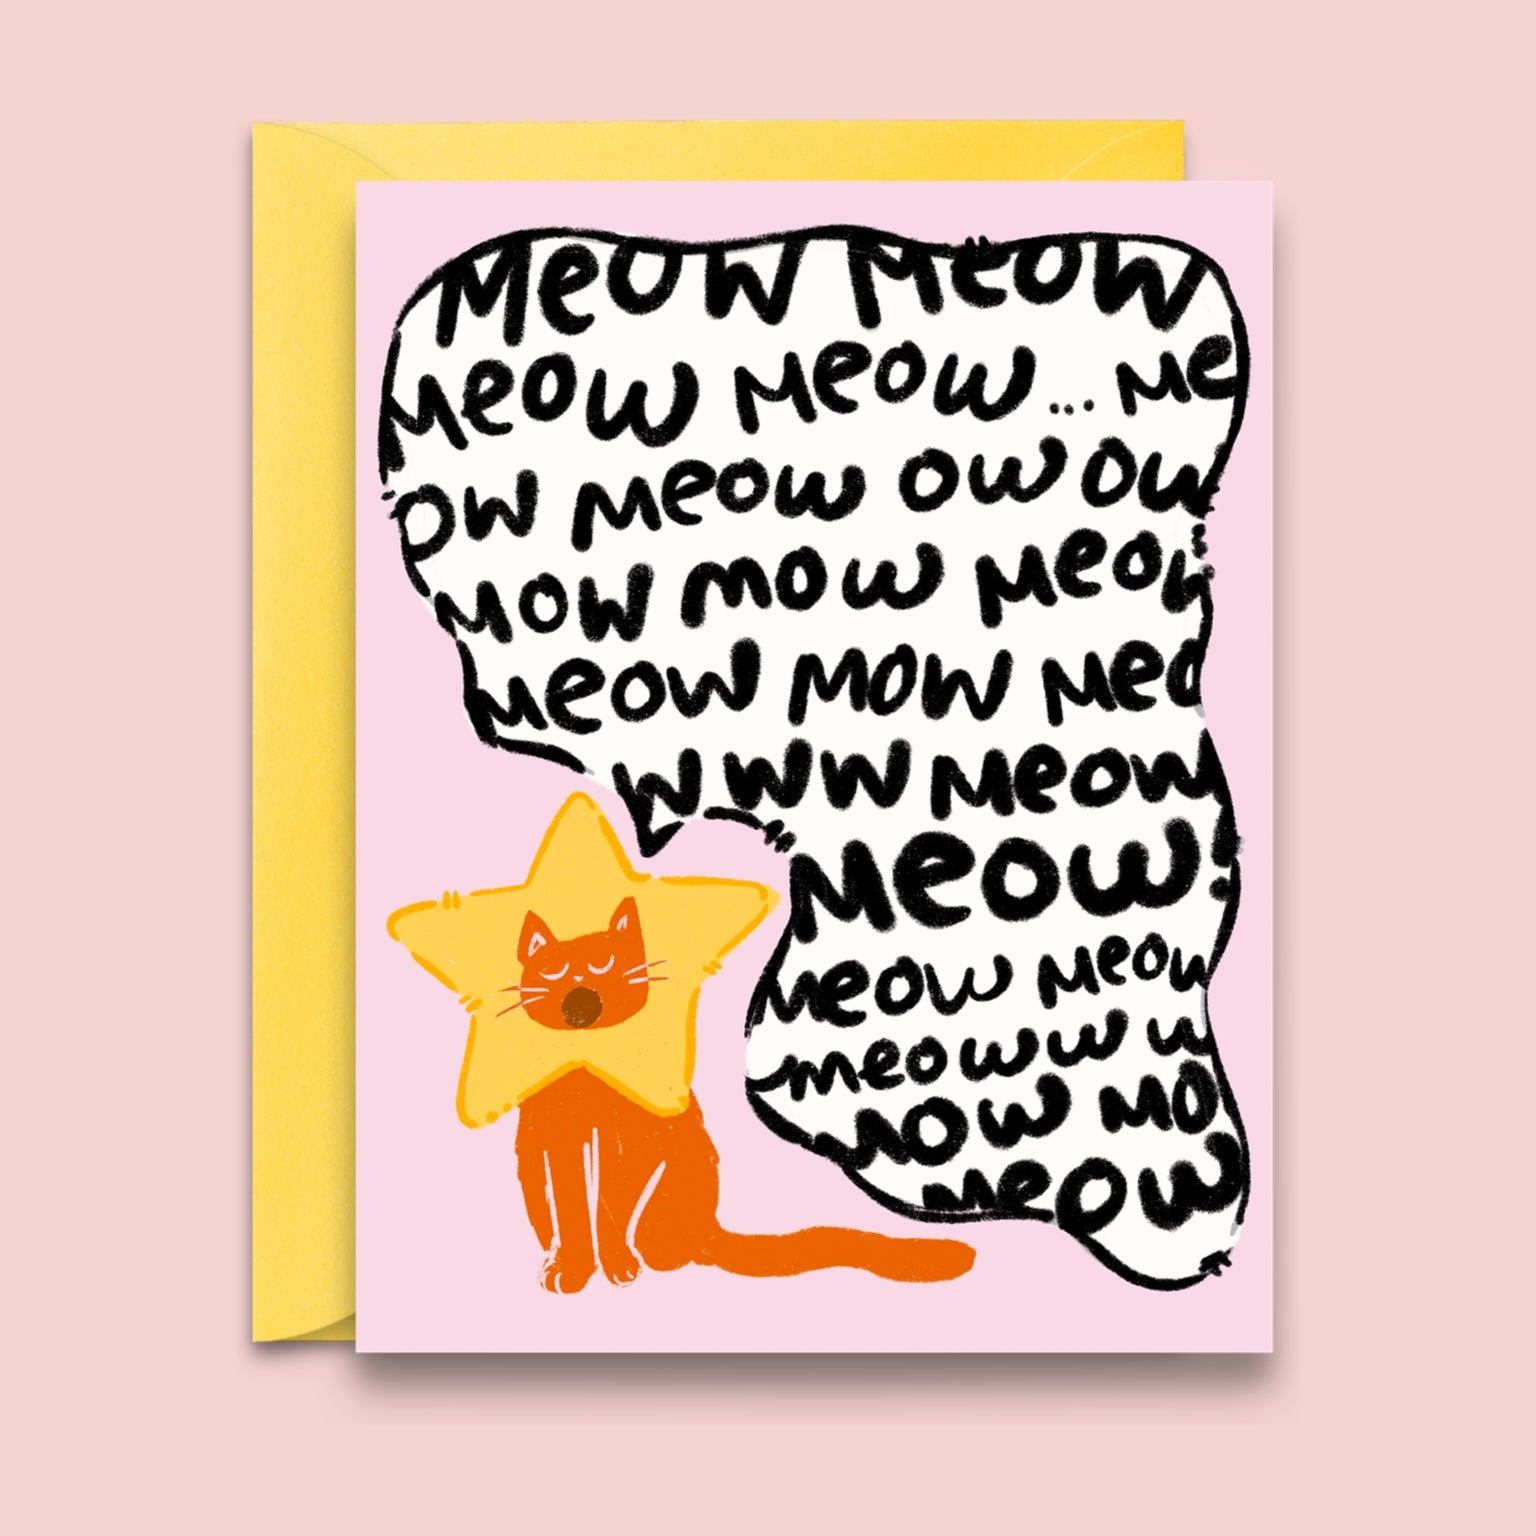 meow meow
meow meow... me
ow meow ow ow
mow mow meow
meow mow meo
w w w meow
meow!
meow meow
meoww w
mow mo
meow